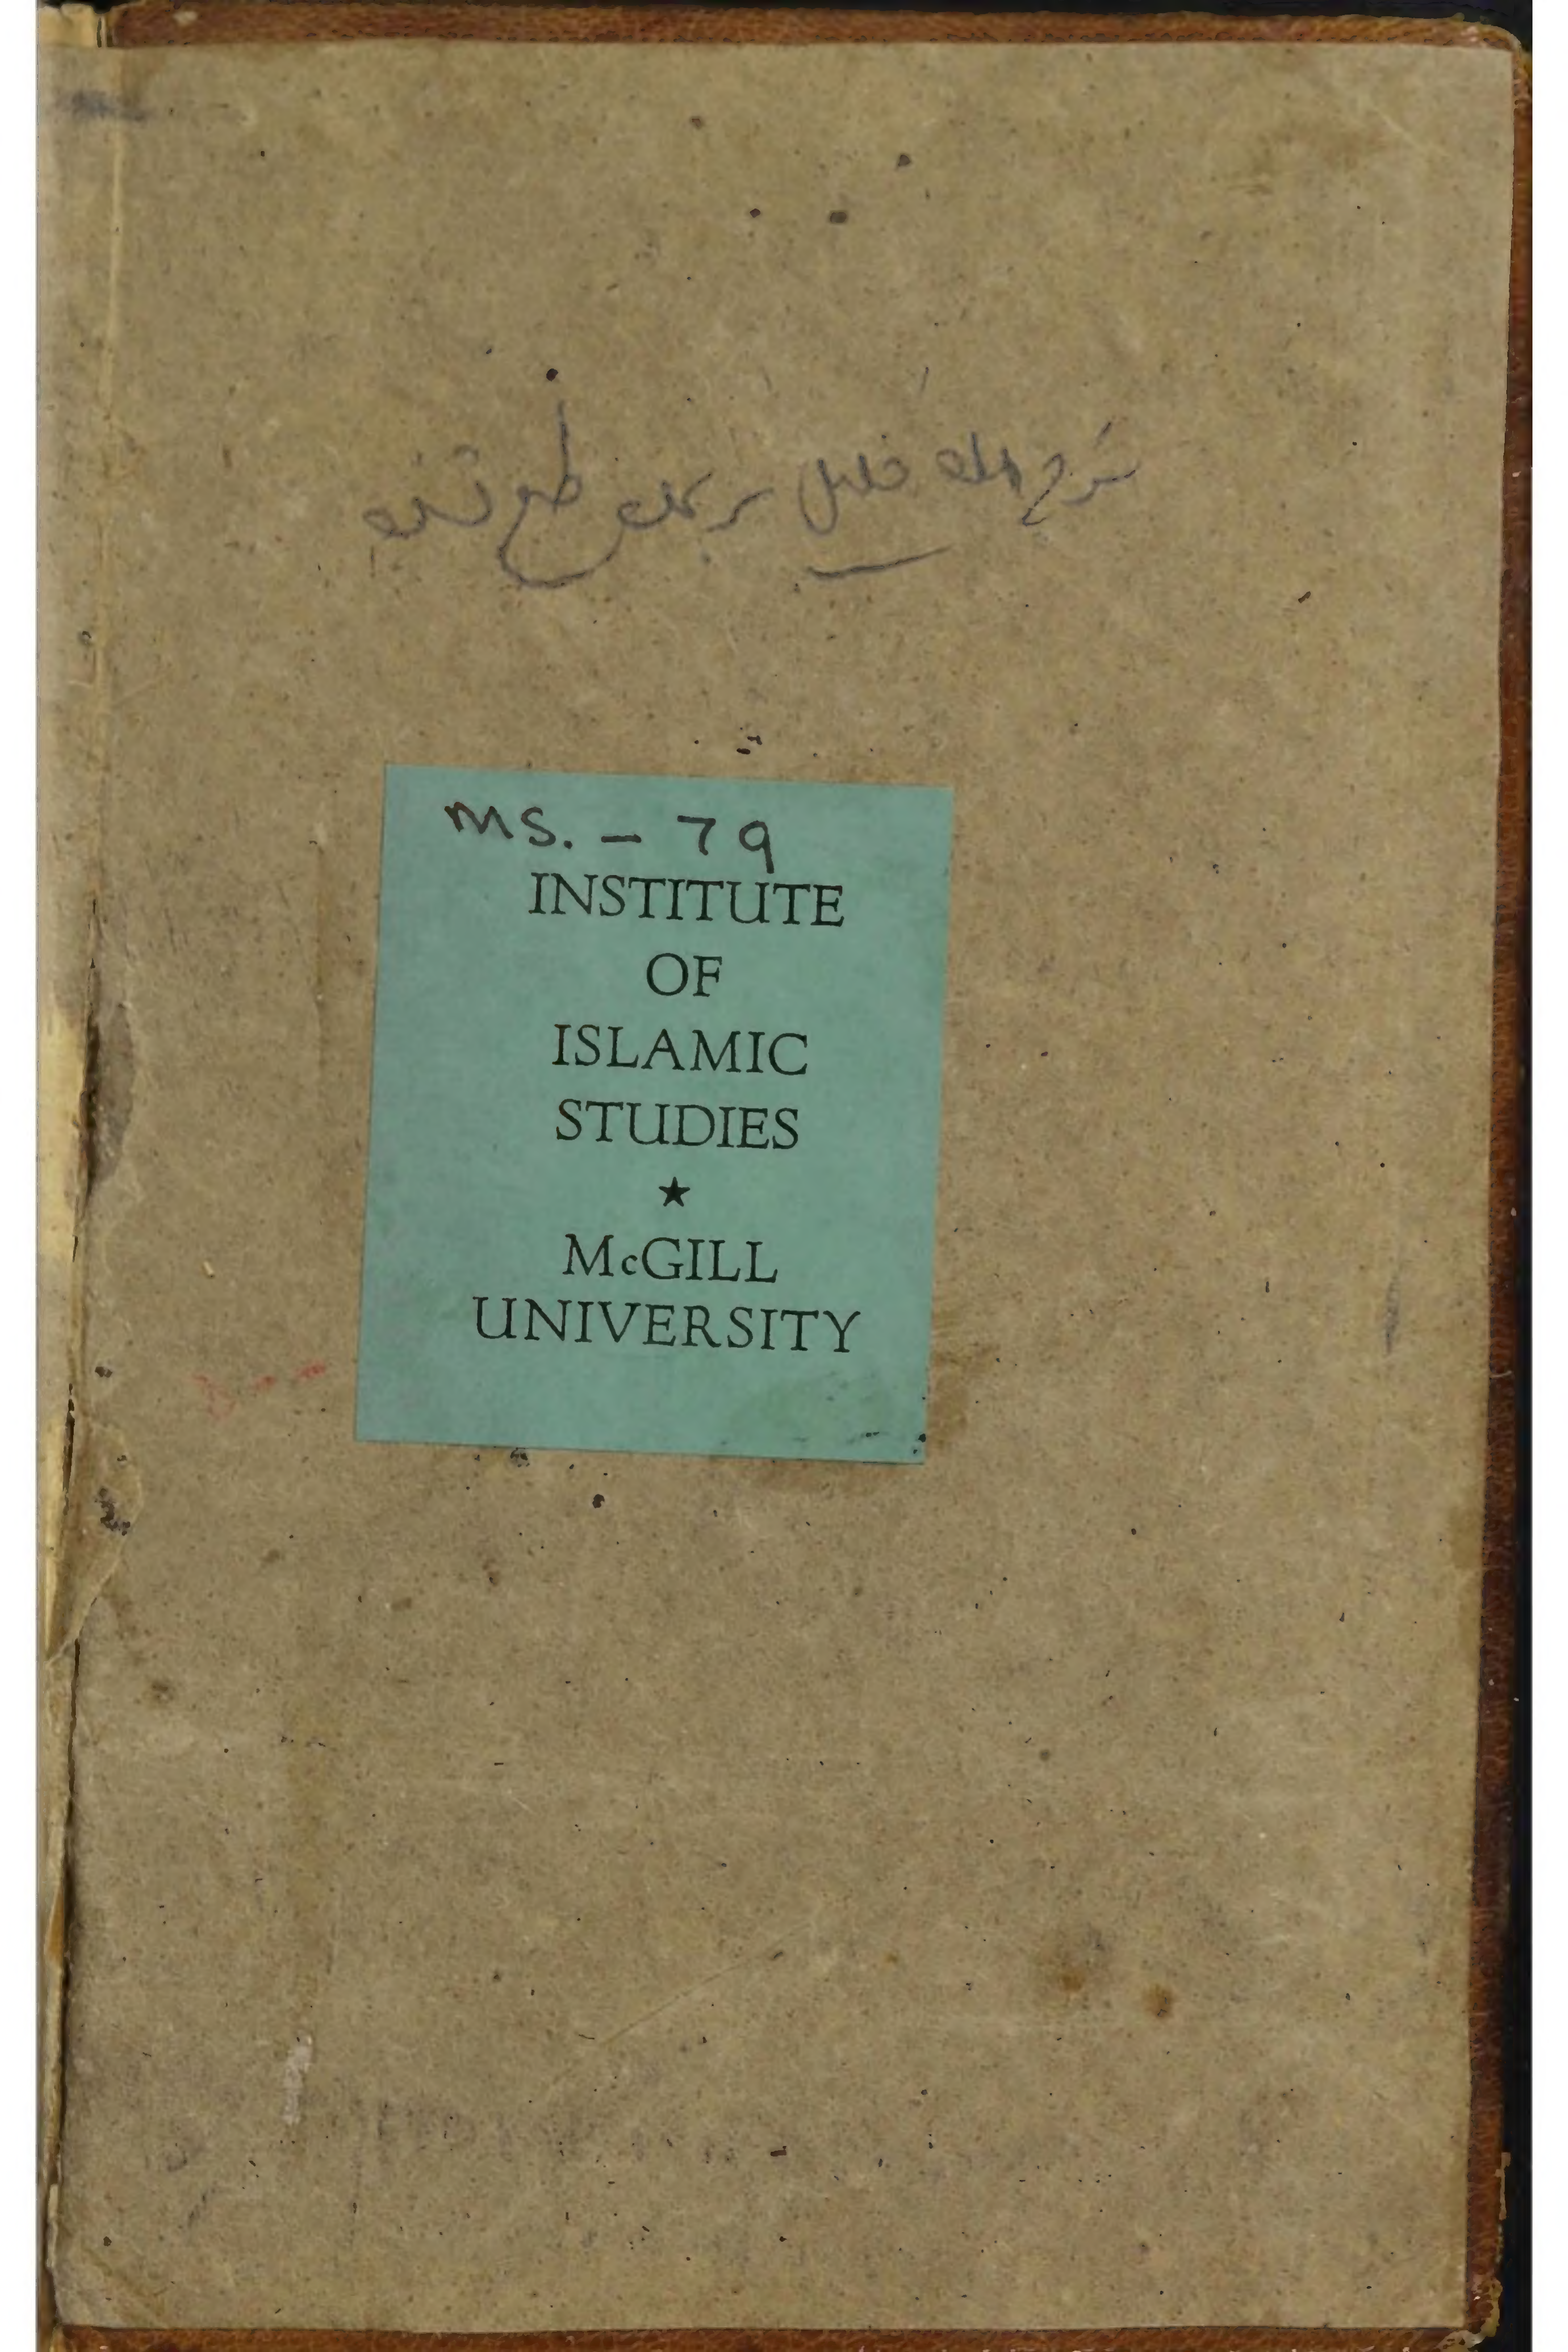 شرح ملا خلیل بر
MS. - 79
INSTITUTE
OF
ISLAMIC
STUDIES
★
McGILL
UNIVERSITY